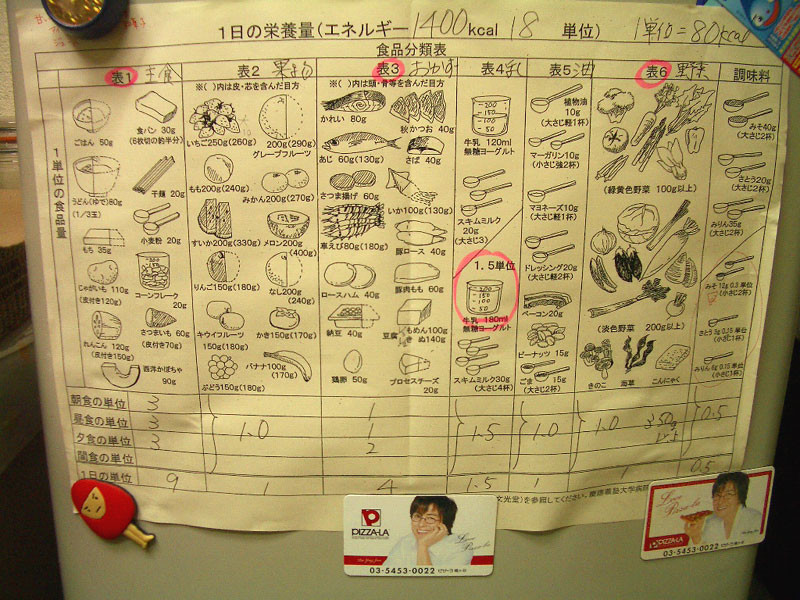 1日の栄養量(エネルギー 1400 kcal 18 単位) 1単位=80kcal
食品分類表
表1 主食
表2 果もの
表3 おかず
表4 乳
表5 油
表6 野菜
調味料
※( )内は皮・芯を含んだ目方
※( )内は頭・骨等を含んだ目方
一単位の食品量
ごはん 50g
食パン 30g
(6枚切の約半分)
うどん(ゆで)80g
(1/3玉)
干麺 20g
小麦粉 20g
もち 35g
じゃがいも 110g
(皮付き120g)
コーンフレーク
20g
れんこん 120g
(皮付き150g)
さついまも 60g
(皮付き70g)
西洋かぼちゃ
90g
いちご250g(260g)
200g(290g)
グレープフルーツ
もも200g(240g)
みかん200g(270g)
すいか200g(330g)
メロン200g
(400g)
りんご150g(180g)
なし200g
(240g)
キウイフルーツ
150g(180g)
かき150g(170g)
ぶどう150g(180g)
バナナ100g
(170g)
かれい 80g
秋かつお 40g
あじ 60g(130g)
さば 40g
さつま揚げ 60g
いか100g(130g)
車えび80g(180g)
豚ロース 40g
ロースハム 40g
豚肉もも 60g
納豆 40g
豆腐
もめん100g
きぬ140g
鶏卵 50g
プロセスチーズ
20g
200
150
100
50
牛乳 120ml
無糖ヨーグルト
スキムミルク
20g
(大さじ3)
1.5単位
200
150
100
50
牛乳 180ml
無糖ヨーグルト
スキムミルク30g
(大さじ4杯)
植物油
10g
(大さじ軽1杯)
マーガリン10g
(小さじ強2杯)
マヨネーズ10g
(大さじ軽1杯)
ドレッシング20g
(大さじ軽2杯)
ベーコン20g
ピーナッツ 15g
ごま 15g
(大さじ2杯)
(緑黄色野菜 100g以上)
(淡色野菜 200g以上)
きのこ
海草
こんにゃく
みそ40g
(大さじ2杯)
さとう20g
(大さじ2杯)
みりん35g
(大さじ2杯)
みそ 12g 0.3 単位
(小さじ2杯)
さとう 3g 0.15 単位
(小さじ1杯)
みりん 6g 0.15 単位
(小さじ1杯)
朝食の単位 3 1
昼食の単位 3 1.0 1 1.5 1.0 1.0 350g 0.5
夕食の単位 3 2
間食の単位
1日の単位 9 1 4 1.5 1 1 0.5
文光堂)を参照してください。
PIZZA-LA
03-5453-0022
PIZZA-LA
03-5453-0022